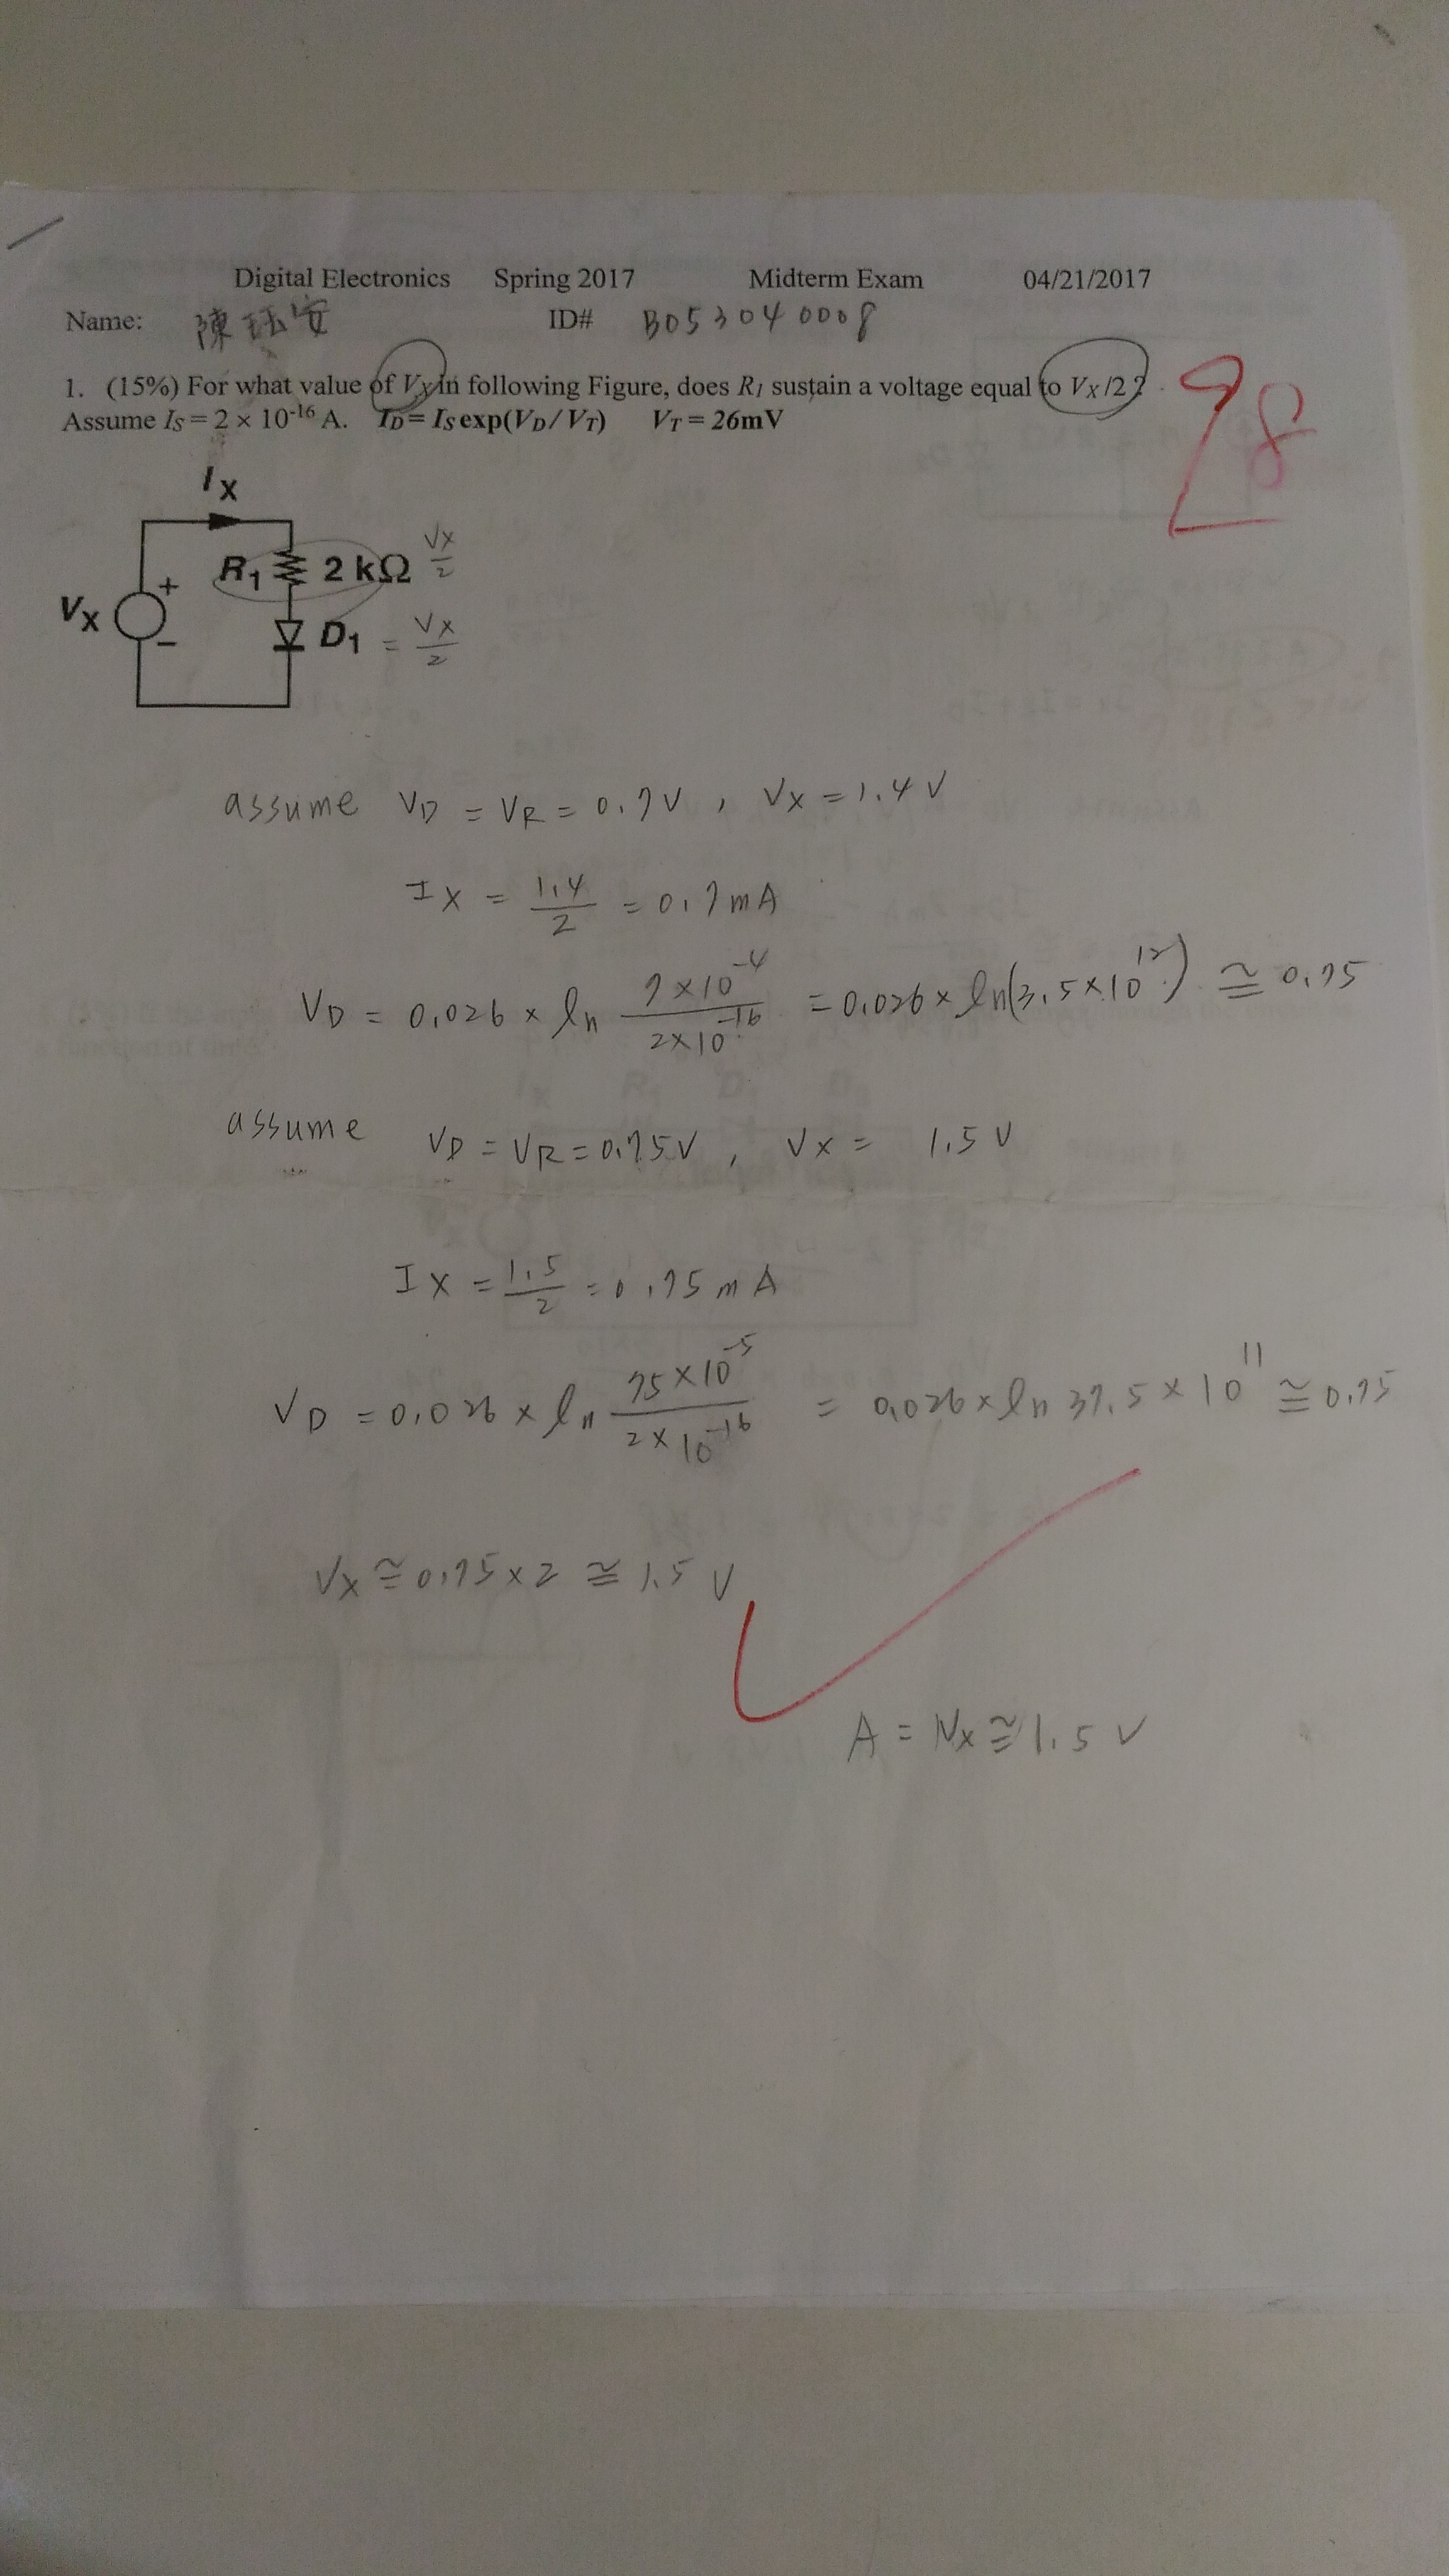 Digital Electronics Spring 2017 Midterm Exam 04/21/2017
Name: 陳鈺安 ID# B053040008
1. (15%) For what value of VX in following Figure, does R1 sustain a voltage equal to VX/2 ?
Assume IS = 2 × 10^-16 A. ID = IS exp(VD/ VT) VT = 26mV
98
IX
R1 2 kΩ VX/2
VX + -
D1 = VX/2
assume VD = VR = 0.7V , VX = 1.4 V
IX = 1.4/2 = 0.7mA
VD = 0.026 × ln 7×10^-4/2×10^-16 = 0.026 × ln(3.5×10^12) ≅ 0.75
assume VD = VR = 0.75V , VX = 1.5 V
IX = 1.5/2 = 0.75 mA
VD = 0.026 × ln 75×10^-5/2×10^-16 = 0.026 × ln 37.5 × 10^11 ≅ 0.75
VX ≅ 0.75×2 ≅ 1.5 V
A = VX ≅ 1.5 V